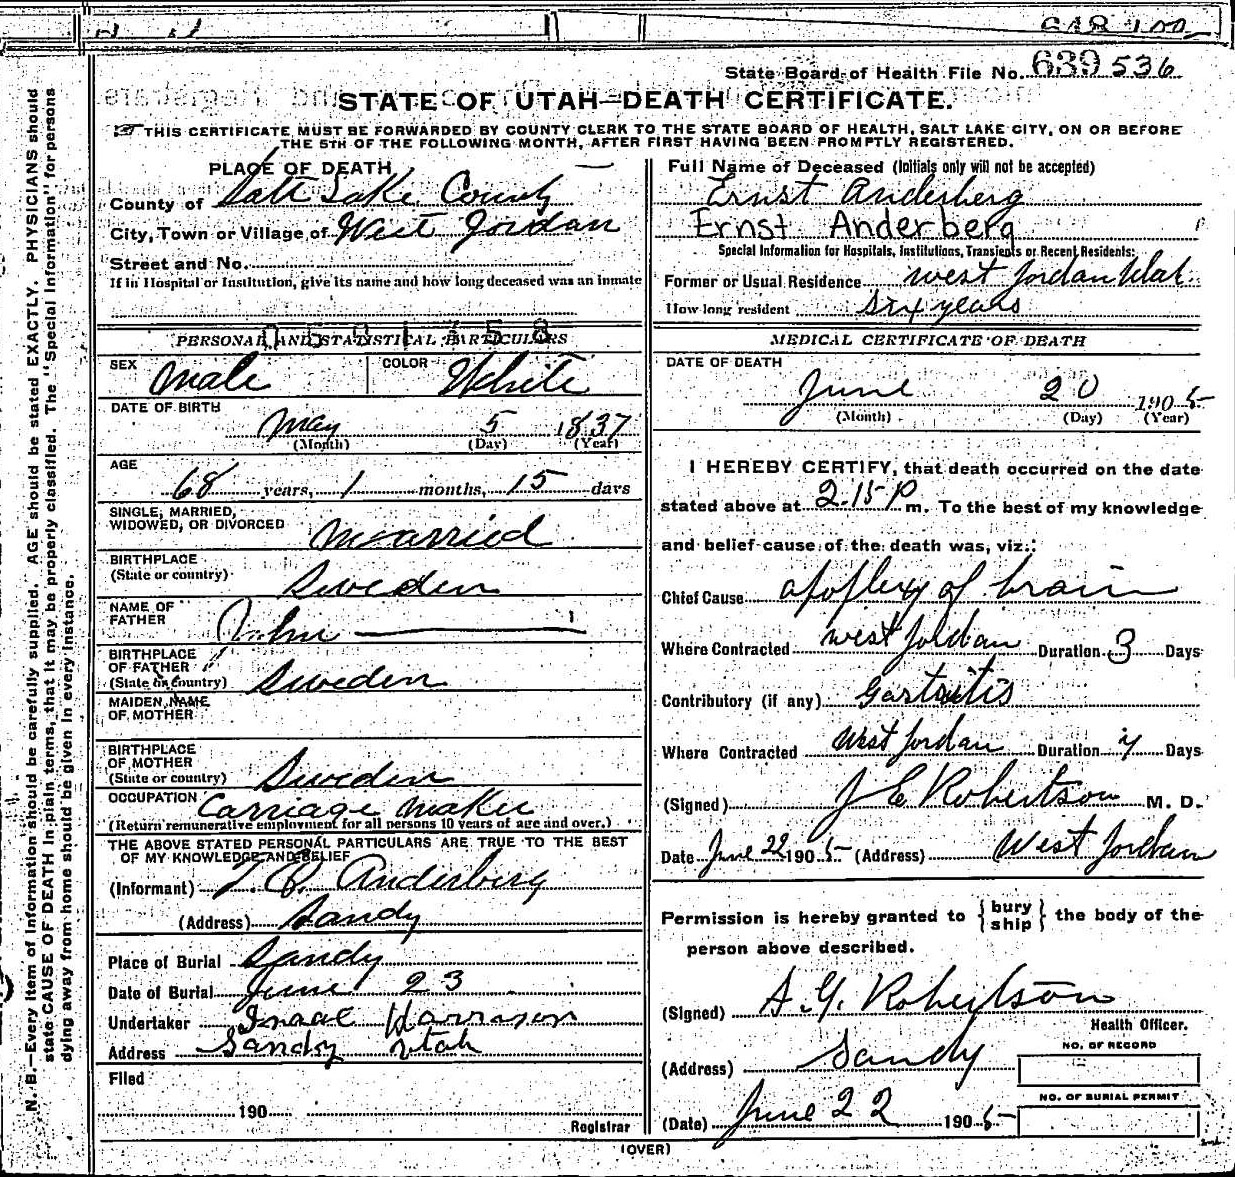 State Board of Health File No. 639 536
STATE OF UTAH—DEATH CERTIFICATE.
☞ THIS CERTIFICATE MUST BE FORWARDED BY COUNTY CLERK TO THE STATE BOARD OF HEALTH, SALT LAKE CITY, ON OR BEFORE
THE 5TH OF THE FOLLOWING MONTH, AFTER FIRST HAVING BEEN PROMPTLY REGISTERED.
PLACE OF DEATH
County of Salt Lake County
City, Town or Village of West Jordan
Street and No.
If in Hospital or Institution, give its name and how long deceased was an inmate
PERSONAL AND STATISTICAL PARTICULARS
SEX Male COLOR White
DATE OF BIRTH
May 5 1837
(Month) (Day) (Year)
AGE
68 years, 1 months, 15 days
SINGLE, MARRIED,
WIDOWED, OR DIVORCED Married
BIRTHPLACE
(State or country) Sweden
NAME OF
FATHER John
BIRTHPLACE
OF FATHER
(State or country) Sweden
MAIDEN NAME
OF MOTHER
BIRTHPLACE
OF MOTHER
(State or country) Sweden
OCCUPATION Carriage Maker
(Return remunerative employment for all persons 10 years of age and over.)
THE ABOVE STATED PERSONAL PARTICULARS ARE TRUE TO THE BEST
OF MY KNOWLEDGE AND BELIEF
(Informant) Anderberg
(Address) Sandy
Place of Burial Sandy
Date of Burial June 23
Undertaker Isaac Harrison
Address Sandy Utah
Filed
190
Registrar
Full Name of Deceased (Initials only will not be accepted)
Ernst Anderberg
Ernst Anderberg
Special Information for Hospitals, Institutions, Transients or Recent Residents:
Former or Usual Residence West Jordan Utah
How long resident Six years
MEDICAL CERTIFICATE OF DEATH
DATE OF DEATH
June 20 1905
(Month) (Day) (Year)
I HEREBY CERTIFY, that death occurred on the date
stated above at 2.15 P m. To the best of my knowledge
and belief cause of the death was, viz.:
Chief Cause apoplexy of brain
Where Contracted West Jordan Duration 3 Days
Contributory (if any) Gastritis
Where Contracted West Jordan Duration Days
(Signed) J E Robertson M. D.
Date June 22 1905 (Address) West Jordan
Permission is hereby granted to { bury ship } the body of the
person above described.
(Signed) A. Y. Robertson
Health Officer.
(Address) Sandy
NO. OF RECORD
NO. OF BURIAL PERMIT
(Date) June 22 1905
(OVER)
N. B.—Every item of information should be carefully supplied. AGE should be stated EXACTLY. PHYSICIANS should
state CAUSE OF DEATH in plain terms, that it may be properly classified. The "Special Information" for persons
dying away from home should be given in every instance.